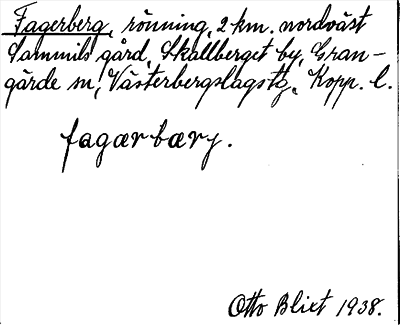 Fagerberg, rönning, 2 km. nordväst
Sammils gård, Skallberget by, Gran-
gärde sn, Västerbergslagstg, Kopp. l.
fagærbærj.
Otto Blixt 1938.